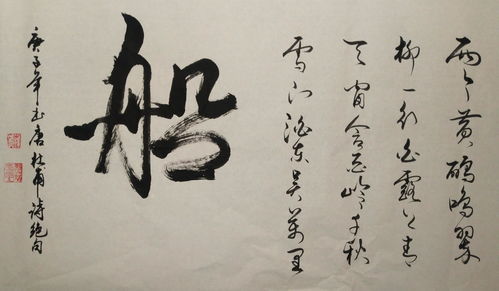 两个黄鹂鸣翠
柳一行白鹭上青
天窗含西岭千秋
雪门泊东吴万里
船
庚子年书唐杜甫詩绝句